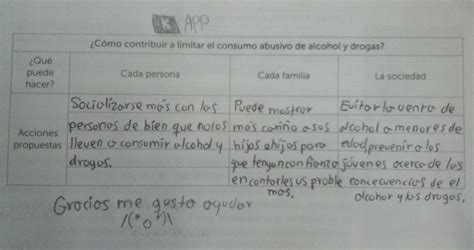 K APP
¿Cómo contribuir a limitar el consumo abusivo de alcohol y drogas?
¿Qué puede hacer?
Cada persona
Cada familia
La sociedad
Acciones propuestas
Socializarse más con las
personas de bien que no los
lleven a consumir alcohol y
drogas.
Puede mostrar
más cariño a sus
hijos e hijas para
que tengan confianza
en contarles us proble
mas.
Evitar la venta de
alcohol a menores de
edad, prevenir a los
jóvenes acerca de los
concecuencias de el
alcohor y las drogas.
Gracias me gusto ayudar
/(*o*)\